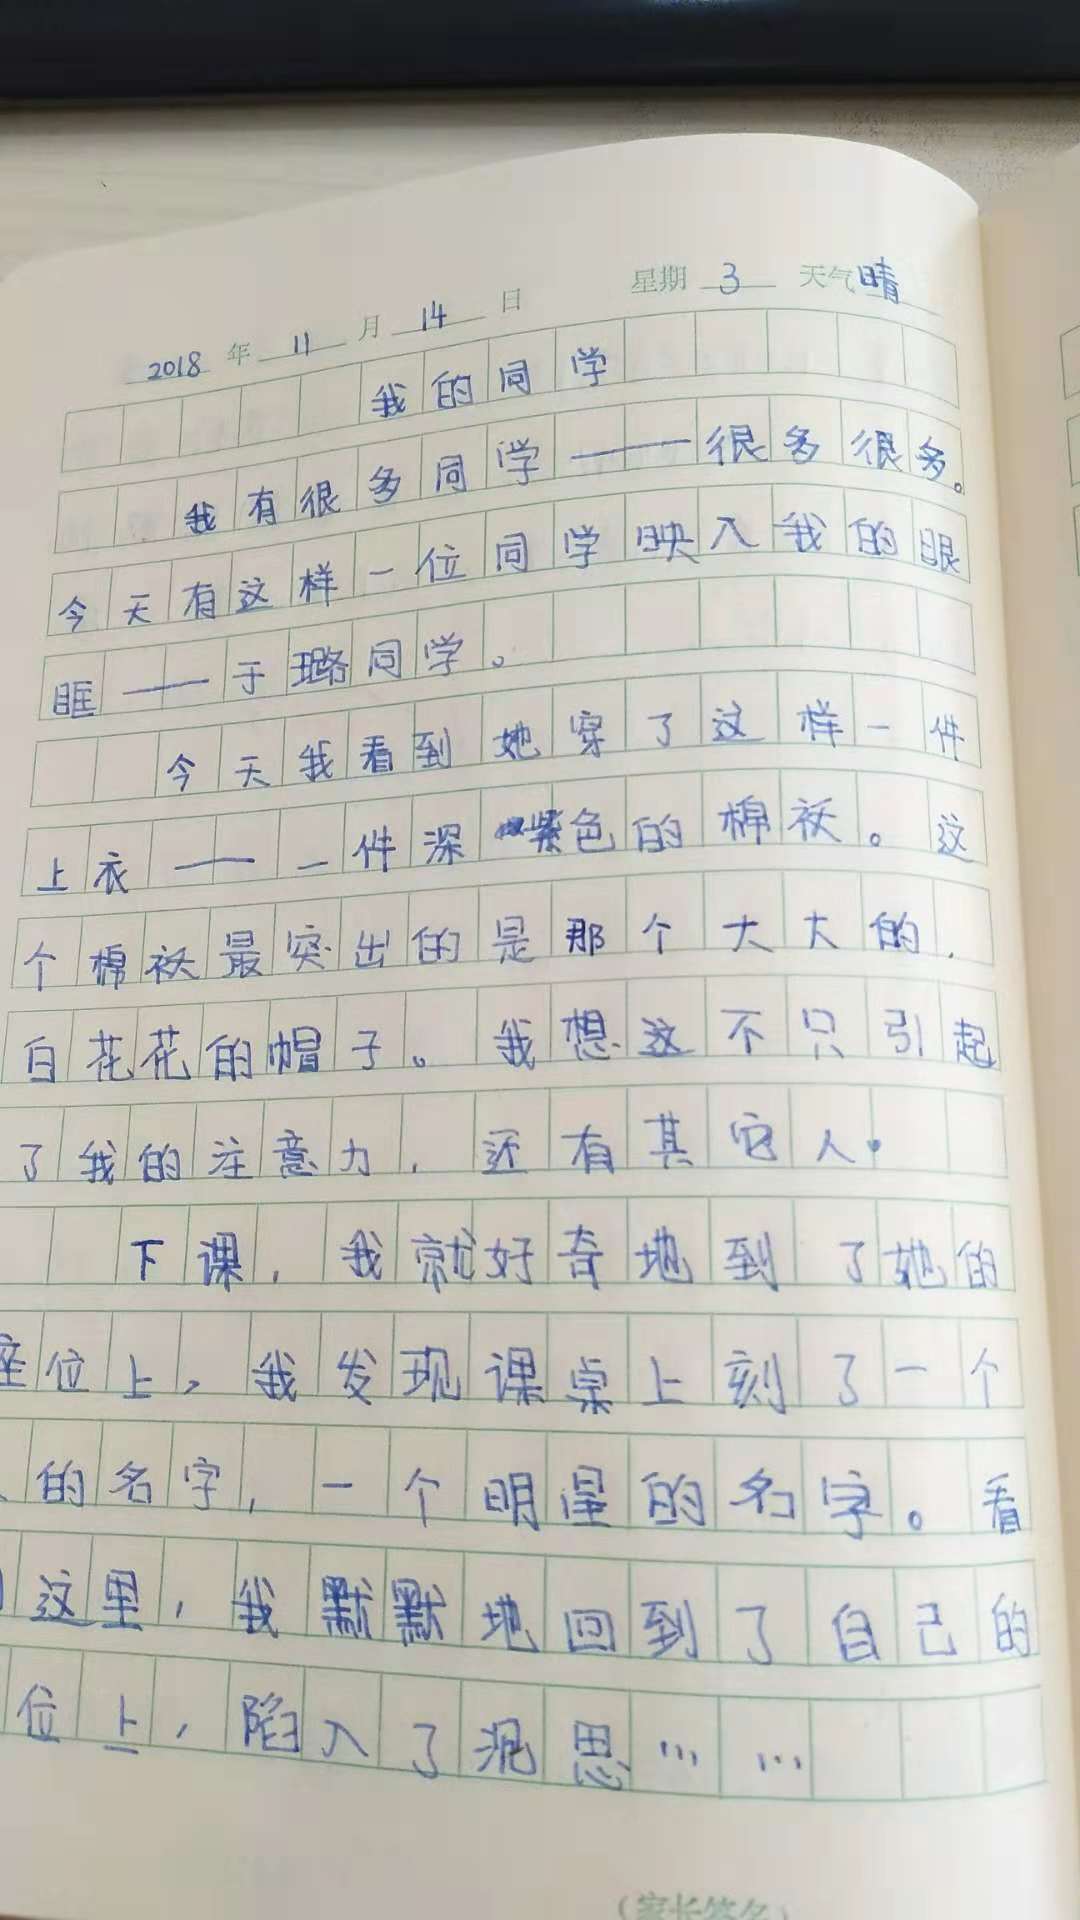 2018 年 11 月 14 日 星期 3 天气晴
我的同学
我有很多同学——很多很多。
今天有这样一位同学映入我的眼
眶——于璐同学。
今天我看到她穿了这样一件
上衣——一件深紫色的棉袄。这
个棉袄最突出的是那个大大的，
白花花的帽子。我想这不只引起
了我的注意力，还有其它人。
下课，我就好奇地到了她的
座位上，我发现课桌上刻了一个
的名字，一个明星的名字。看
这里，我默默地回到了自己的
位上，陷入了沉思……
（家长签名）